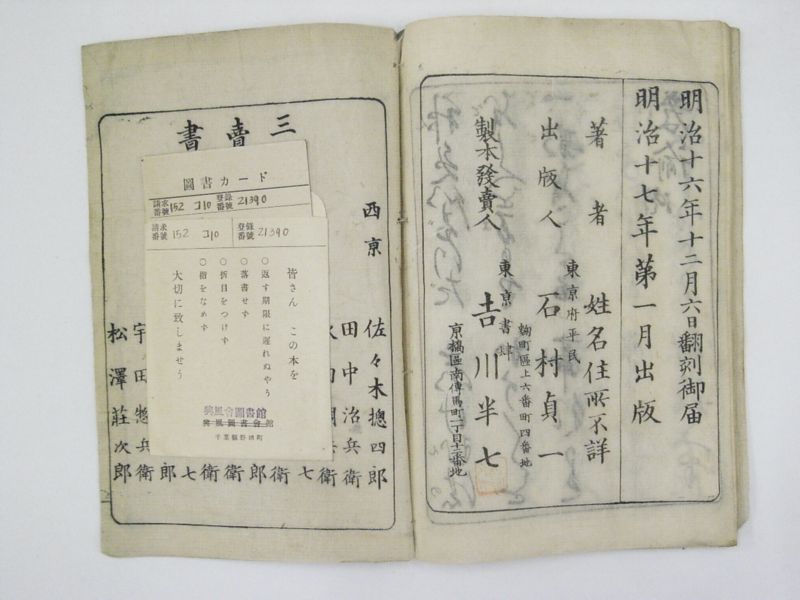 明治十六年十二月六日翻刻御届
明治十七年第一月出版
著者 姓名住所不詳
東京府平民
出版人 石村貞一
麹町區上六番町四番地
東京書肆
製本發賣人 吉川半七
京橋區南傳馬町一丁目十二番地
三賣書
西京
佐々木摠四郎
田中治兵衛
衛
郎
衛
衛
七
郎
宇田惣兵衛
松澤莊次郎
圖書カード
請求番號 152 コ10 登錄番號 21390
請求番號 152 コ10 登錄番號 21390
皆さん この本を
○返す期限に遲れぬやう
○落書せず
○折目をつけず
○指をなめず
大切に致しませう
興風會圖書館
興風圖書會館
千葉縣野田町